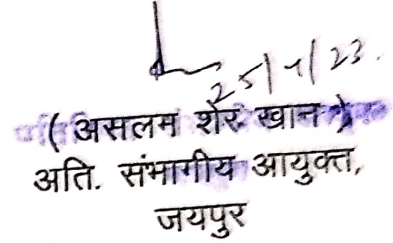 25/4/23.
( असलम शेर खान )
अति. संभागीय आयुक्त,
जयपुर